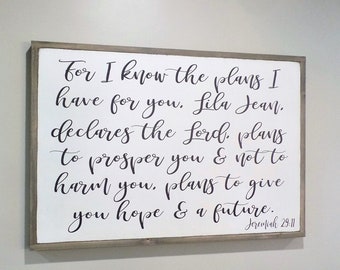 For I know the plans I
have for you, Lila Jean,
declares the Lord, plans
to prosper you & not to
harm you, plans to give
you hope & a future.
Jeremiah 29:11